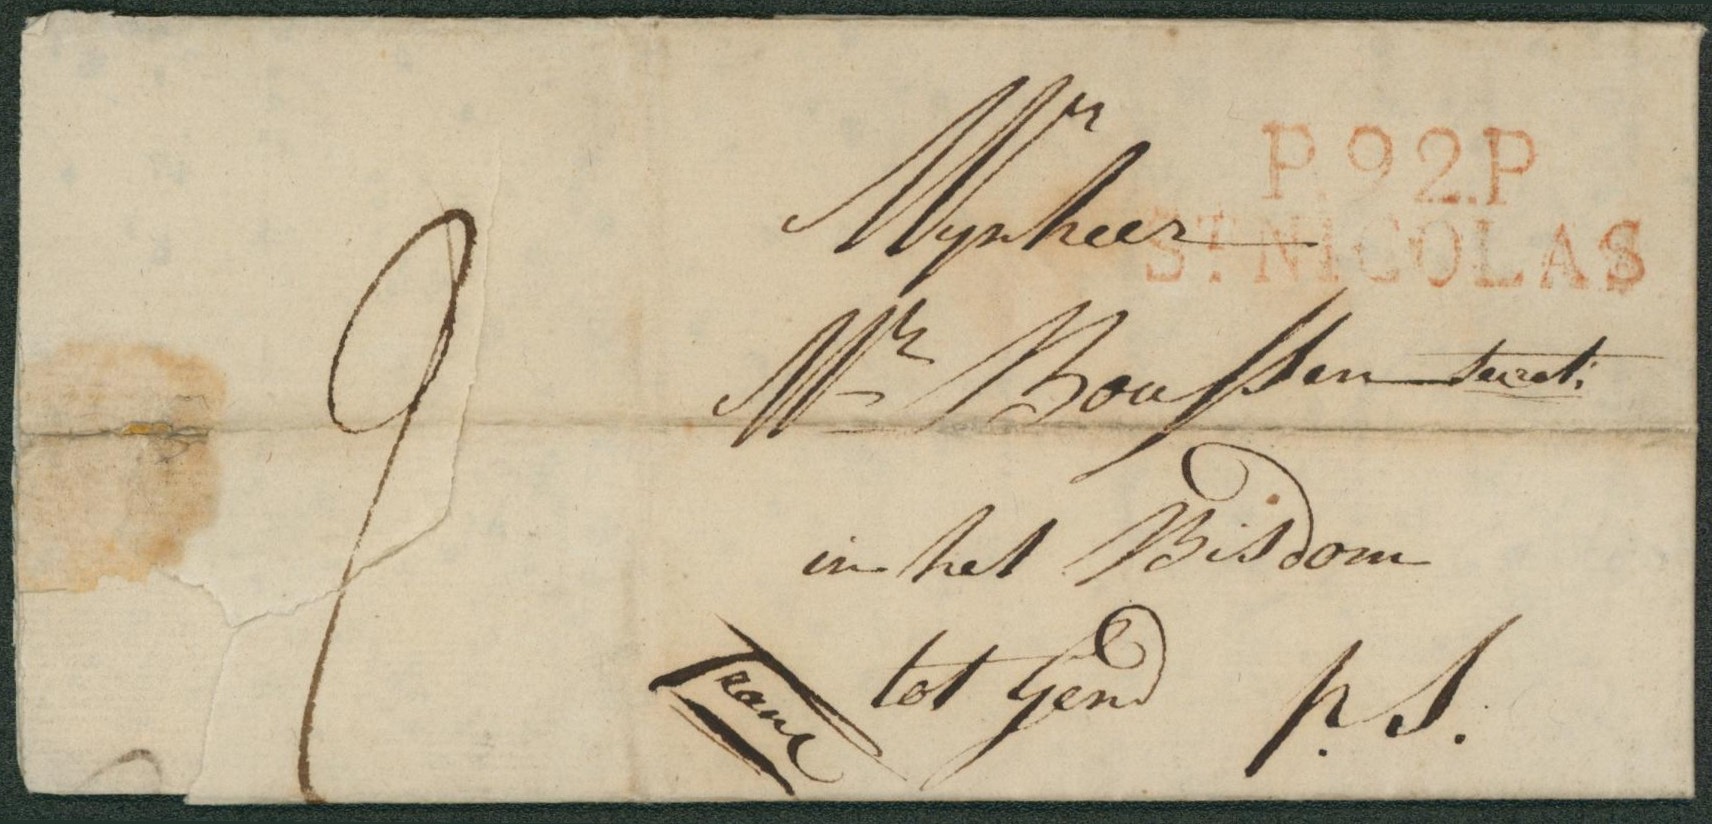 P.92.P
St NICOLAS
Mr
Mynheer
Mr Boussen Secret:
in het Bisdom
tot Gend
p. S.
franc